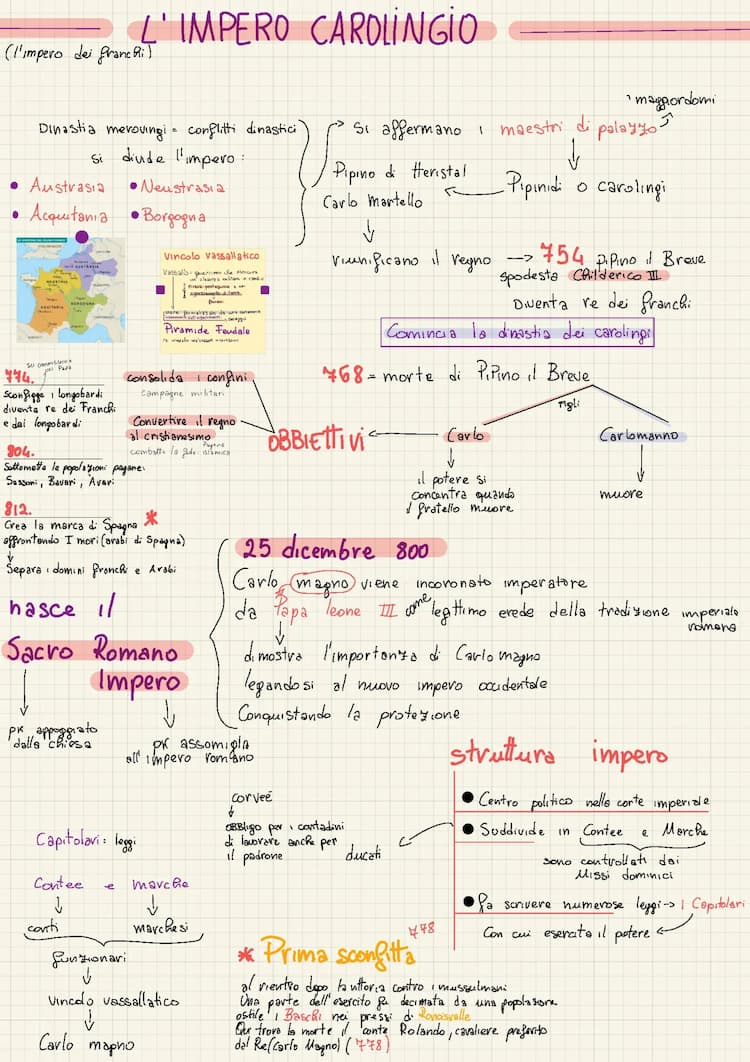 L'IMPERO CAROLINGIO
(l'impero dei franchi)
Dinastia merovingi = conflitti dinastici
si divide l'impero:
• Austrasia • Neustrasia
• Acquitania • Borgogna
maggiordomi
Si affermano i maestri di palazzo
Pipinidi o carolingi
Pipino di Heristal
Carlo Martello
riunificano il regno → 754 Pipino il Breve
spodesta Childerico III
Diventa re dei franchi
Comincia la dinastia dei carolingi
Vincolo Vassallatico
Piramide Feudale
768 = morte di Pipino il Breve
figli
Carlo
Carlomanno
il potere si
concentra quando
il fratello muore
muore
OBBIETTIVI
consolida i confini
campagne militari
Convertire il regno
al cristianesimo
774.
su commissione
del Papa
Sconfigge i longobardi
diventa re dei Franchi
e dei longobardi
804.
Sottomette le popolazioni pagane:
Sassoni, Bavari, Avari
812.
Crea la marca di Spagna *
affrontando I mori (arabi di Spagna)
Separa i domini franchi e Arabi
25 dicembre 800
Carlo magno viene incoronato imperatore
da Papa leone III come legittimo erede della tradizione imperiale
romana
dimostra l'importanza di Carlo magno
legandosi al nuovo impero occidentale
Conquistando la protezione
nasce il
Sacro Romano
Impero
pk appoggiato
dalla chiesa
pk assomiglia
all'impero romano
struttura impero
• Centro politico nella corte imperiale
• Suddivide in Contee e Marche
sono controllati dai
Missi dominici
ducati
• Fa scrivere numerose leggi → I Capitolari
Con cui esercita il potere
corveé
obbligo per i contadini
di lavorare anche per
il padrone
Capitolari: leggi
Contee e marche
conti marchesi
funzionari
Vincolo vassallatico
Carlo magno
* Prima sconfitta 778
al rientro dopo la vittoria contro i mussulmani
Una parte dell'esercito fu decimata da una popolazione
ostile i Baschi nei pressi di Roncisvalle
Qui trovo la morte il conte Rolando, cavaliere preferito
dal Re (Carlo Magno) (778)